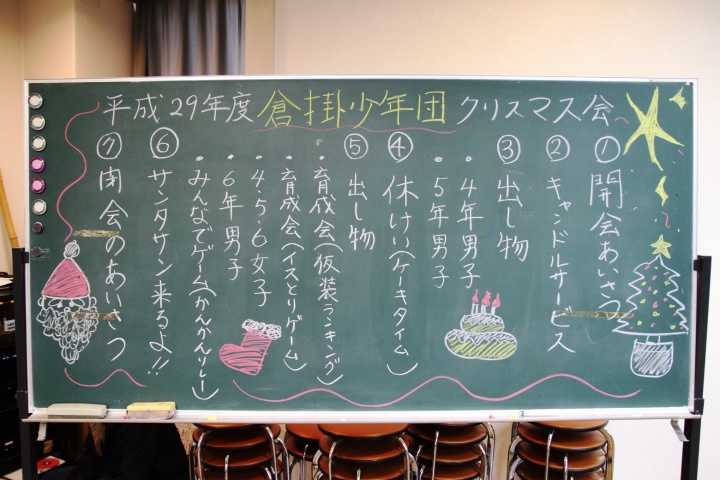 平成29年度 倉掛少年団 クリスマス会
①開会あいさつ
②キャンドルサービス
③出し物
・4年男子
・5年男子
④休けい(ケーキタイム)
⑤出し物
・育成会(仮装ランキング)
・育成会(イスとりゲーム)
・4・5・6女子
・6年男子
・みんなでゲーム(かんかんリレー)
⑥サンタサン来るよ!!
⑦閉会のあいさつ